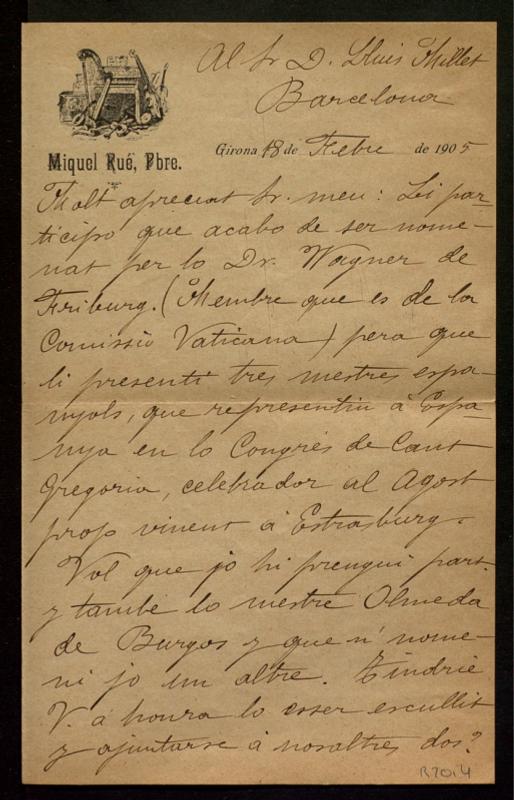 Al Sr D. Lluis Millet
Barcelona
Miquel Rué, Pbre.
Girona 18 de Febre de 1905
Molt apreciat Sr. meu: Li par-
ticipo que acabo de ser nome-
nat per lo Dr. Wagner de
Friburg. (Membre que es de la
Comissió Vaticana) pera que
li presenti tres mestres espa-
nyols, que representin á Espa-
nya en lo Congrés de Cant
Gregoriá, celebrador al Agost
prop vinent á Estrasburg.
Vol que jo hi prengui part.
y també lo mestre Olmeda
de Burgos y que n' nome-
ni jo un altre. Tindrie
V. á honra lo esser escullit
y ajuntarse á nosaltres dos?
R70.4